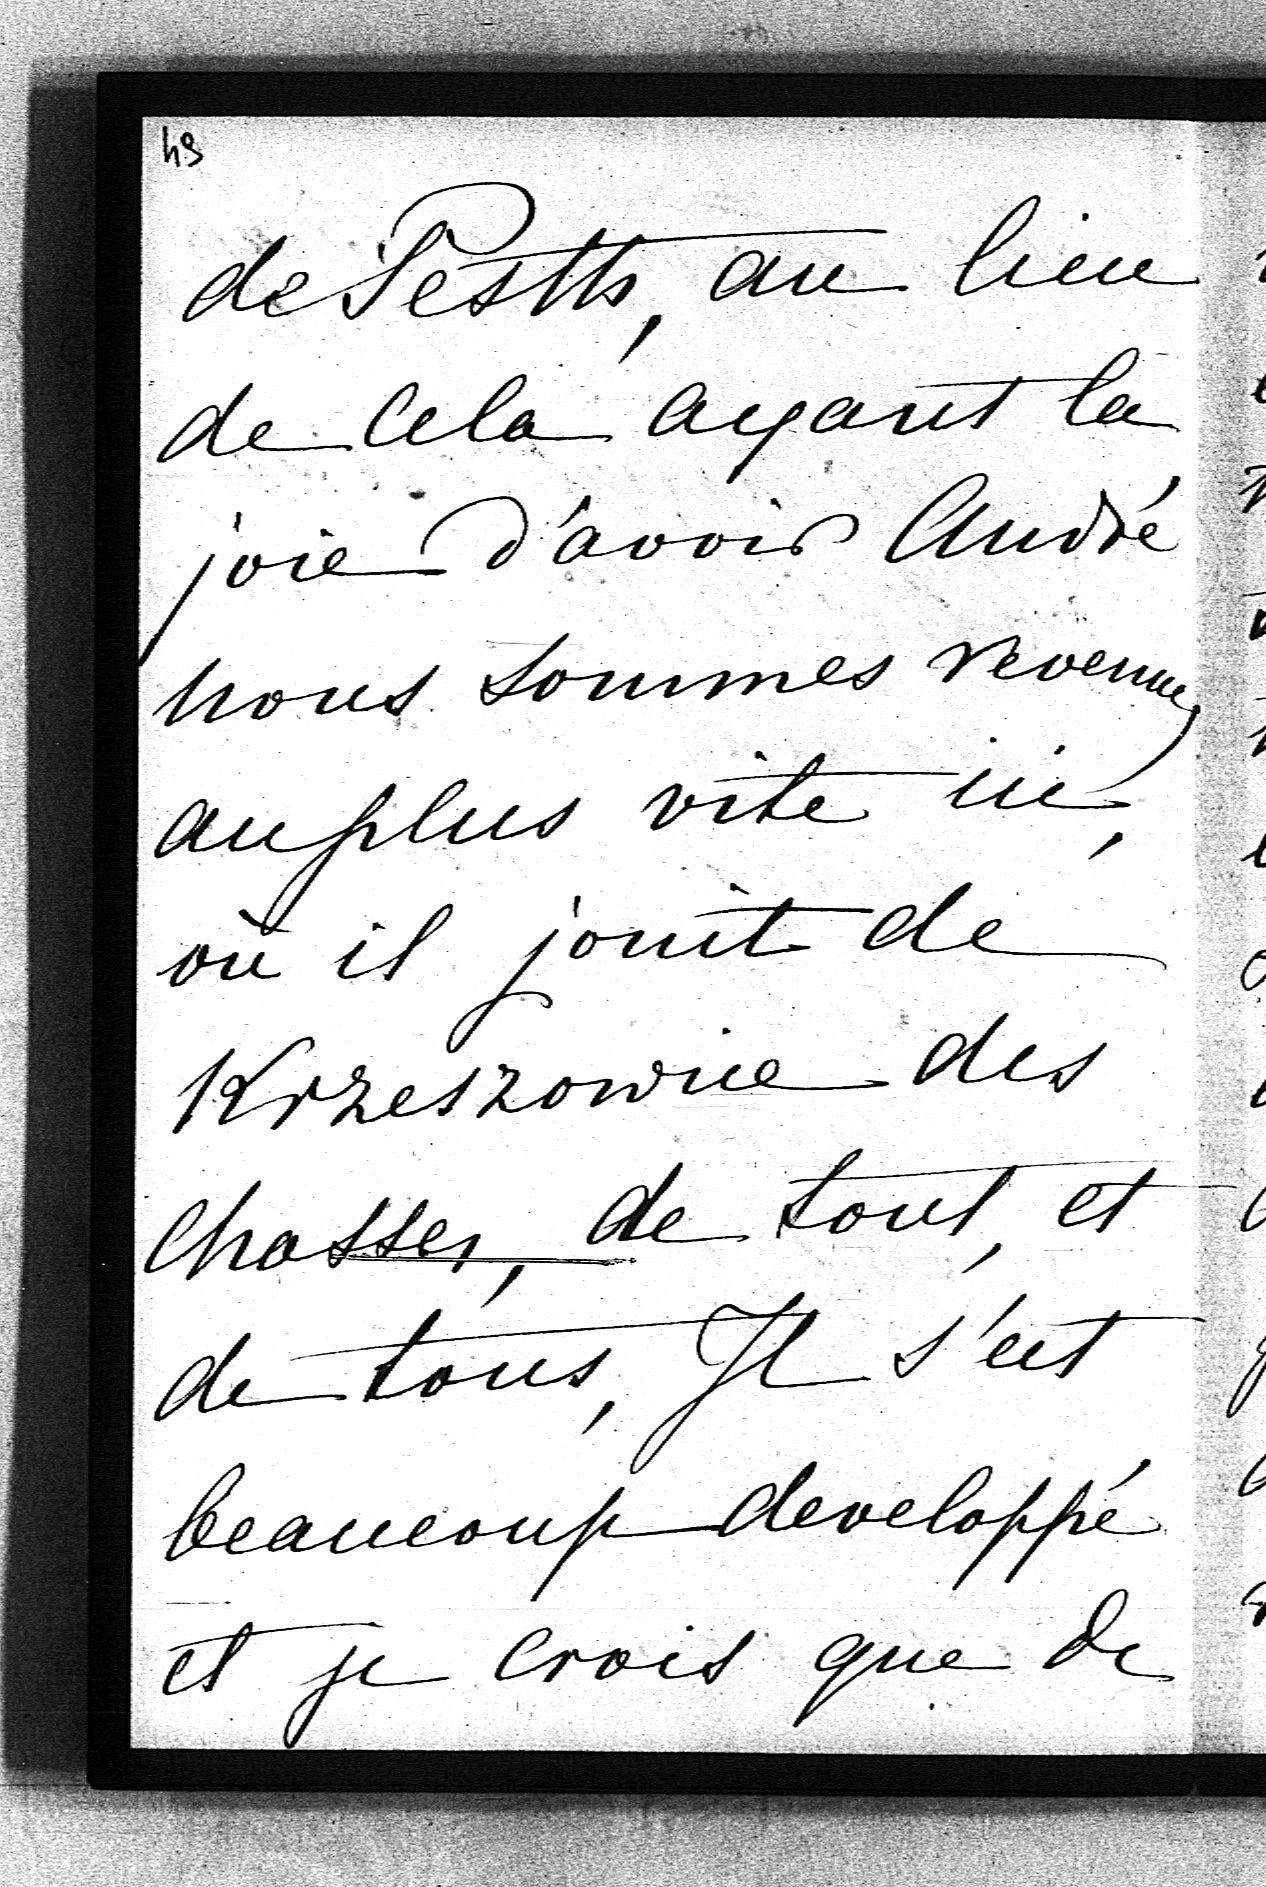 49
de Pesth, au lieu
de cela ayant la
joie d'avoir André
nous sommes revenus
au plus vite ici,
où il jouit de
Krzeszowice des
chasses, de tout, et
de tous, Il s'est
beaucoup developpé
et je crois que de